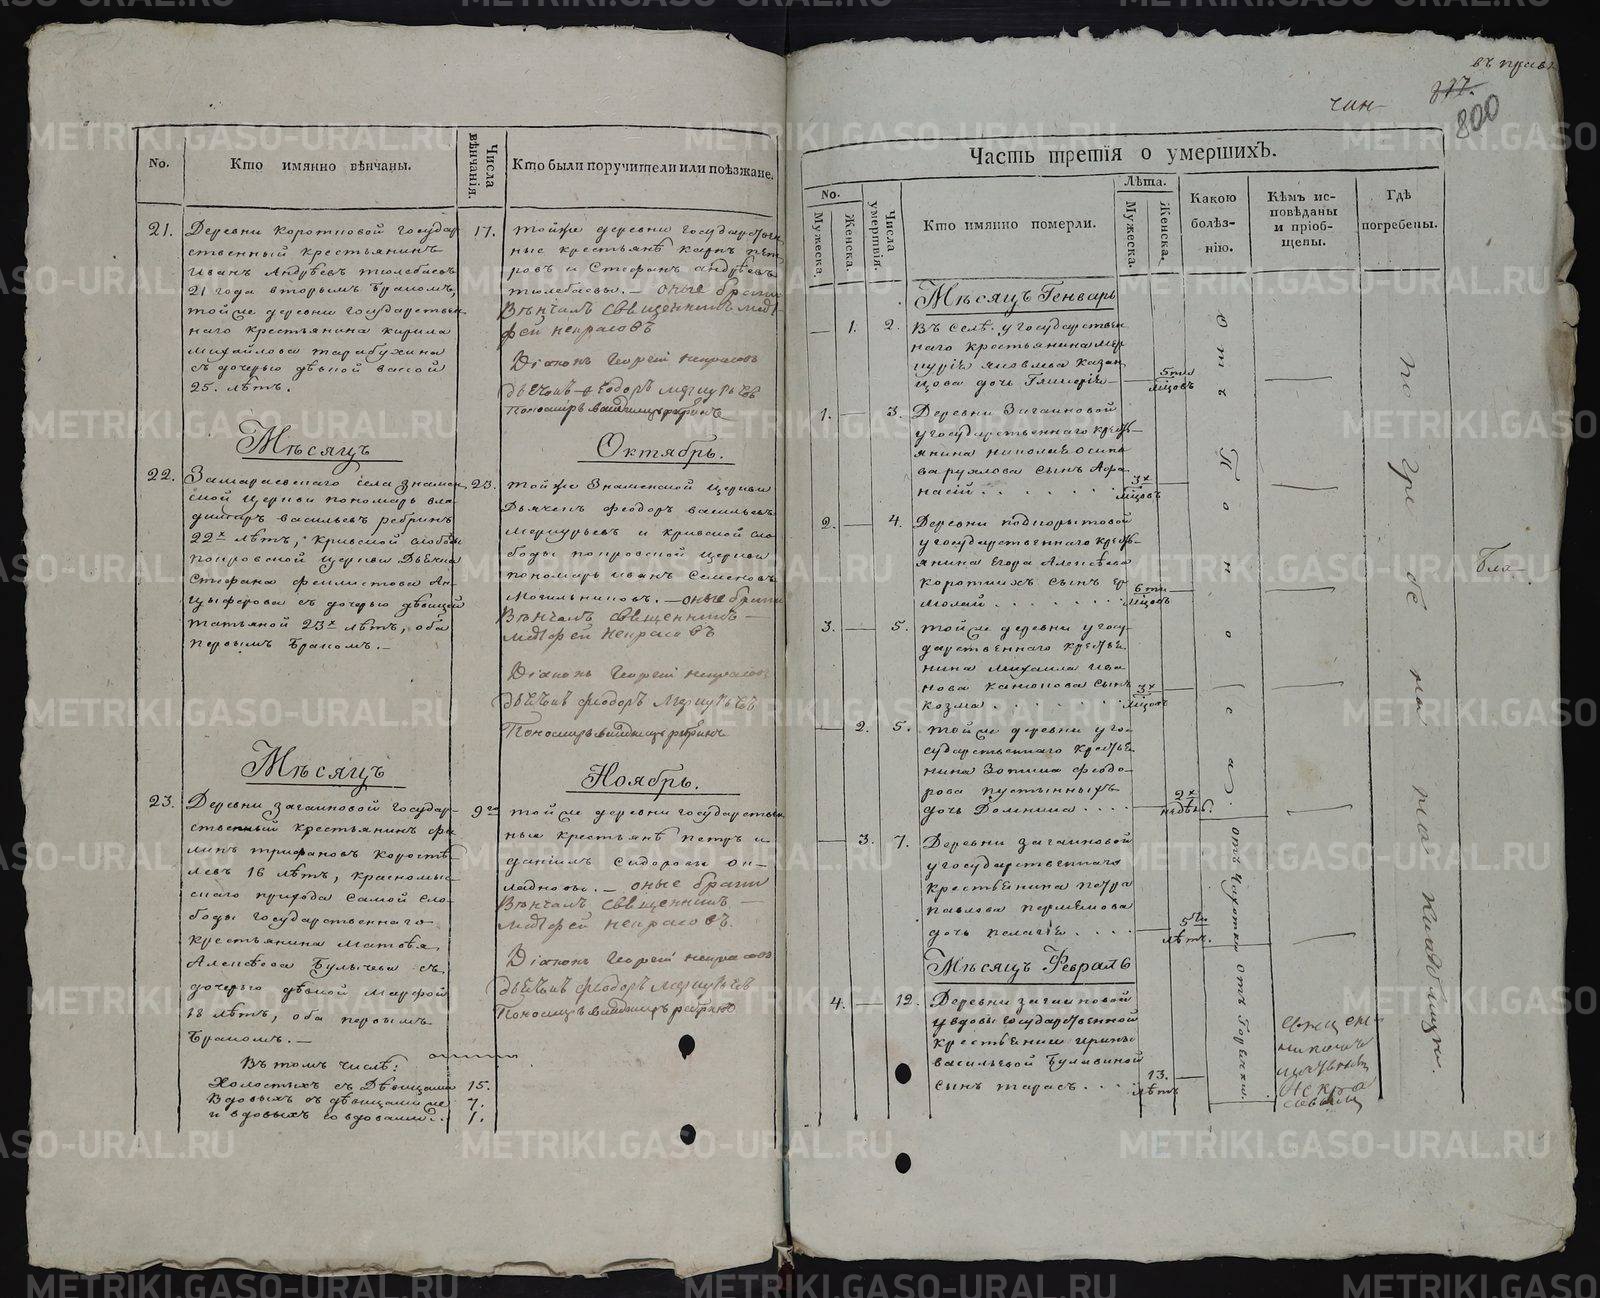 No.
Кто имянно вѣнчаны.
Числа вѣнчанія.
Кто были поручители или поѣзжане.
21.
Деревни Коротковой государ
ственный крестьянинъ
Иванъ Андрѣевъ
21 года вторымъ бракомъ,
той же деревни государствен
наго крестьянина Кирила
Михайлова Тарабухина
съ дочерью дѣвкой Вассой
25. лѣтъ.
17.
той же деревни государствен
ные крестьяне Карпъ Пет
ровъ и Стефанъ Андрѣевъ
оные браки
Вѣнчалъ священникъ Мат
фей Некрасовъ
Діаконъ Георгій Некрасовъ
Дьячекъ Ѳеодоръ Меркурьевъ
Пономарь Владимиръ Ребринъ
Мѣсяцъ
Октябрь.
22.
Замараевскаго села Знамен
ской церкви пономарь Вла
димиръ Васильевъ Ребринъ
22х лѣтъ, Кривской слободы
Покровской церкви Дьячка
Стефана Феликстова Ан
цыферова съ дочерью дѣвицей
Татьяной 23х лѣтъ, оба
первымъ бракомъ.—
23.
той же Знаменской церкви
Дьячекъ Феодоръ Васильевъ
Меркурьевъ и Кривской сло
боды Покровской церкви
пономарь Иванъ Семеновъ
Могильниковъ.— оные браки
Вѣнчалъ священникъ —
Матфей Некрасовъ
Діаконъ Георгій Некрасовъ
Дьячекъ Феодоръ Меркурьевъ
Пономарь Владимиръ Ребринъ
Мѣсяцъ
Ноябрь.
23.
Деревни Загаиновой государ-
ственный крестьянинъ Фи
липъ Трифановъ Коростѣ-
левъ 16 лѣтъ, Красномыс
скаго прихода самой сло-
боды государственнаго
крестьянина Матвѣя
Алексѣева Булычева съ
дочерью дѣвкой Марфой
18 лѣтъ, оба первымъ
бракомъ.—
9го
той же деревни государствен
ные крестьяне Петръ и
Даніилъ Сидоровы
оные браки
Вѣнчалъ священникъ —
Матфей Некрасовъ.
Діаконъ Георгій Некрасовъ
Дьячекъ Феодоръ Меркурьевъ
Пономарь Владимиръ Ребринъ
Въ томъ числѣ:
Холостыхъ съ дѣвицами 15.
Вдовыхъ съ дѣвицами же 7.
и вдовыхъ со вдовами 1.
чин-
800
Часть третія о умершихъ.
No.
Мужеска.
Женска.
Числа умертвія.
Кто имянно померли.
Лѣта.
Мужеска.
Женска.
Какою болѣз-нію.
Кѣмъ ис-повѣданы и пріоб-щены.
Гдѣ погребены.
Мѣсяцъ Генварь
1.
2.
Въ селѣ. у государствен
наго крестьянина Мер
курія Яковлева Казан
цова дочь Гликерія
5ти
мѣсцовъ
1.
3.
Деревни Загаиновой
у государственнаго кресть-
янина Николая Осипо
ва сынъ Афа
насій
3х
мѣсцовъ
2.
4.
Деревни Подкорытовой
у государственнаго кресть-
янина Егора Алексѣева
Короткихъ сынъ Ер
молай
6ти
мѣсцовъ
3.
5.
той же деревни у госу-
дарственнаго крестья
нина Михаила Ива
нова сынъ
Козма
3х
мѣсцовъ
2.
5.
той же деревни у го-
сударственнаго крестья
нина Зотика Феодо-
рова Пустынныхъ
дочь Домника
2х
недѣль.
Отъ поноса.
3.
7.
Деревни Загаиновой
у государственнаго
крестьянина Петра
Павлова
дочь Пелагія
5ти
лѣтъ.
отъ чахотки
Мѣсяцъ Февраль
4.
12.
Деревни Загаиновой
у вдовы государственной
крестьянки Ирины
Васильевой Булавиной
сынъ Тарасъ
13.
лѣтъ
отъ горячки.
Священ-
никомъ
Некра
совымъ
Бля